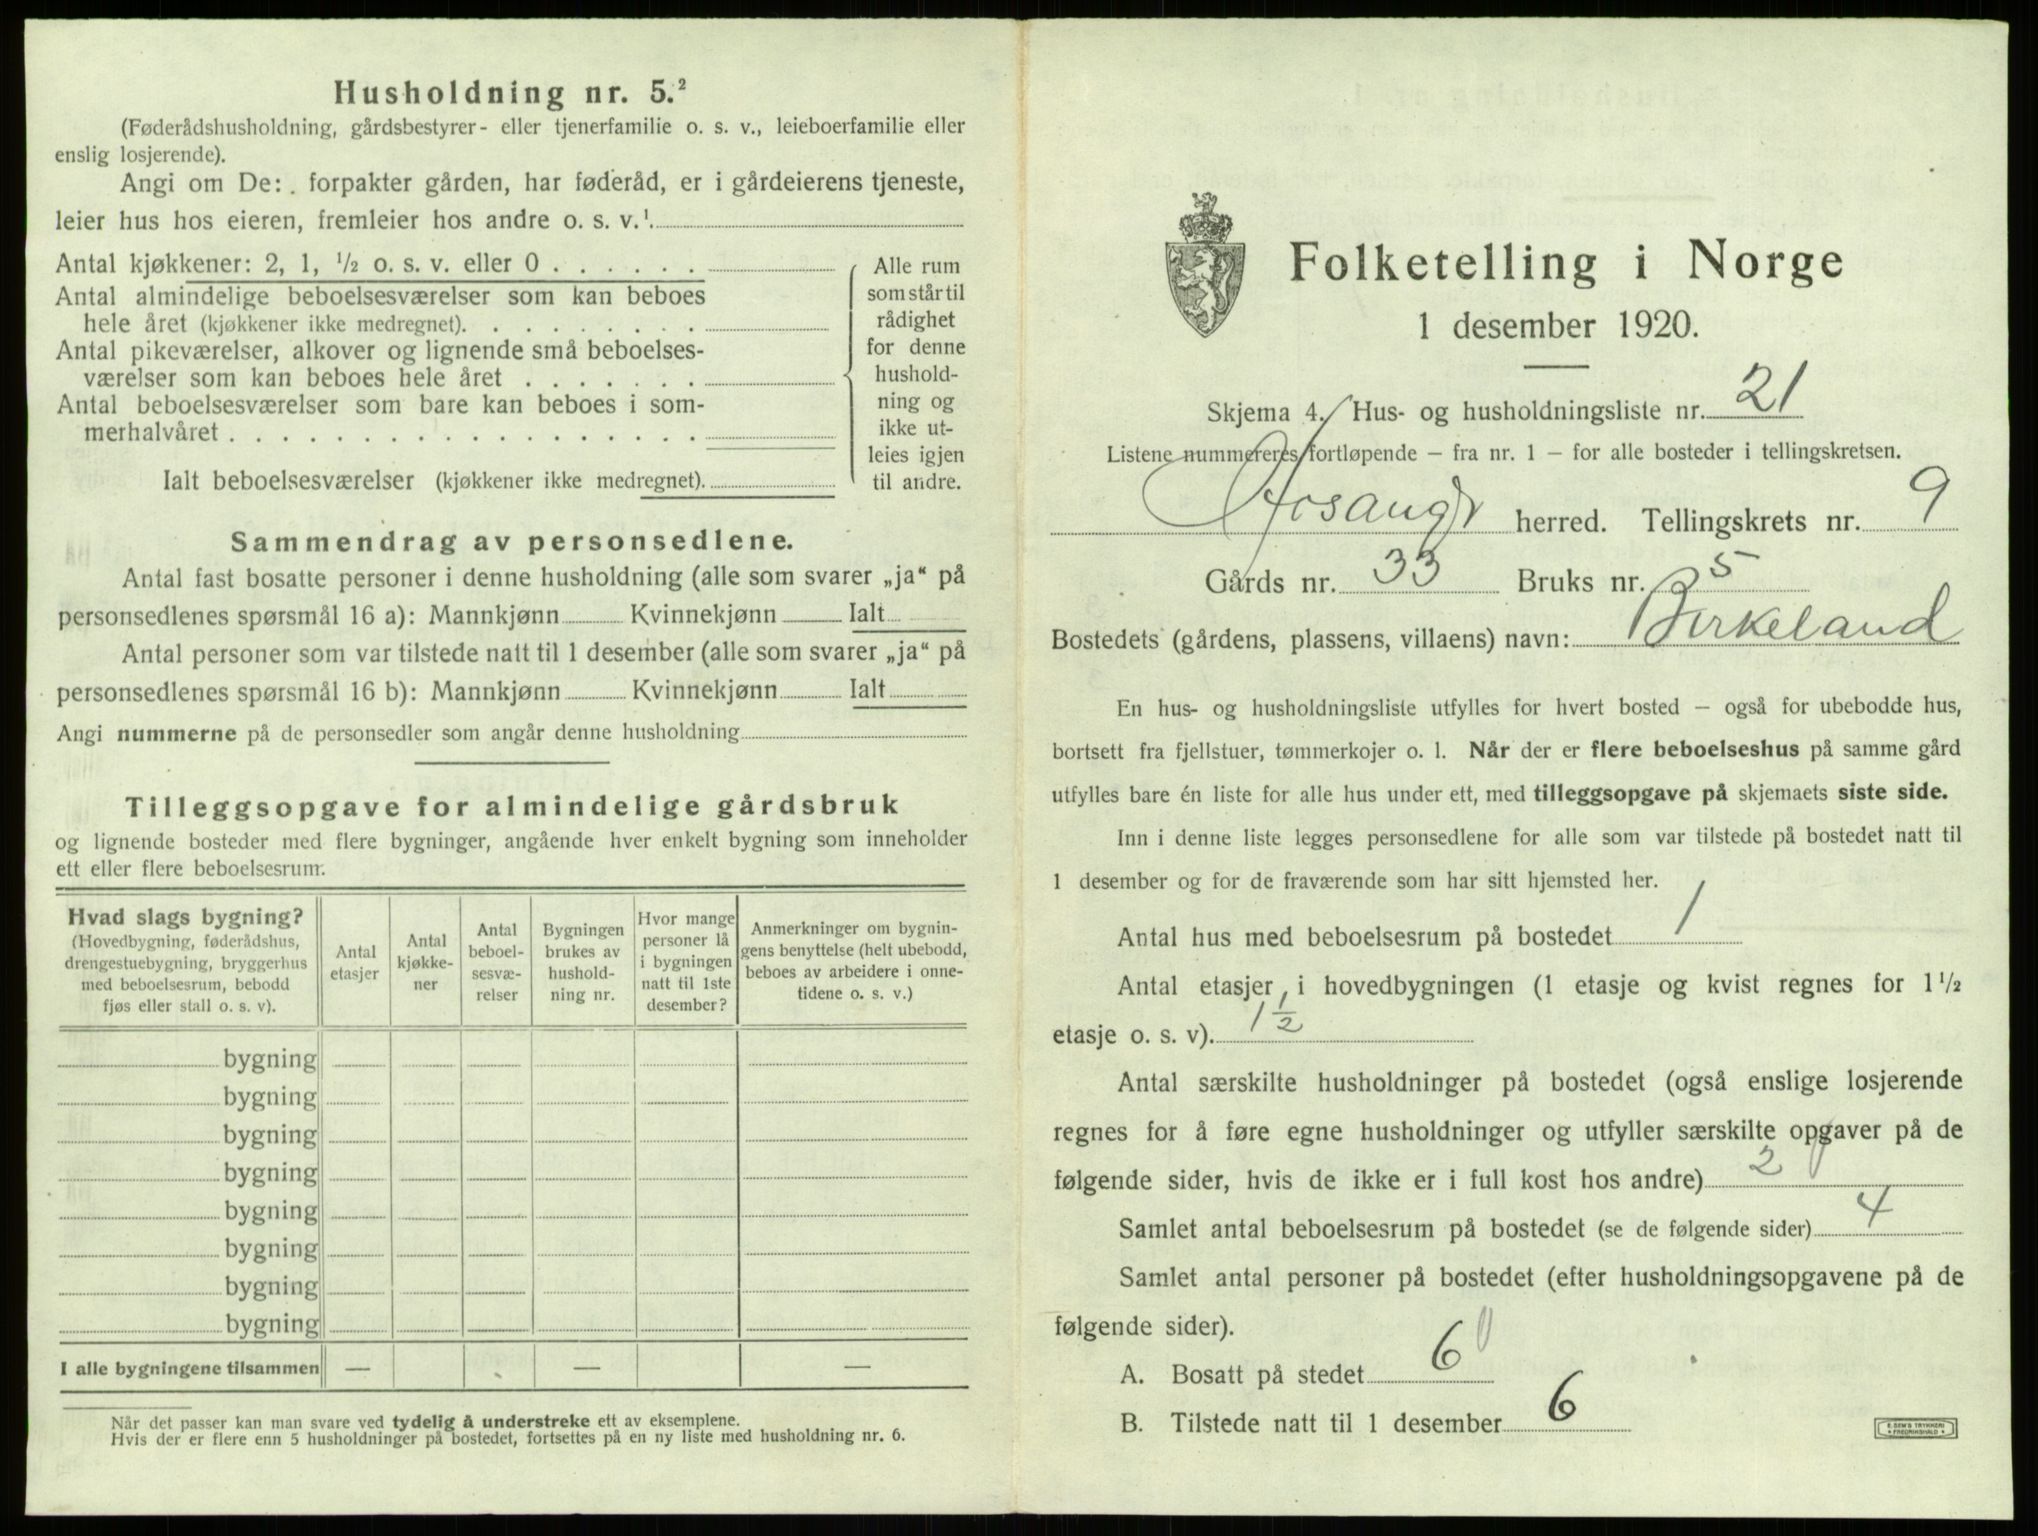 Husholdning nr. 5.²
(Føderådshusholdning, gårdsbestyrer- eller tjenerfamilie o. s. v., leieboerfamilie eller
enslig losjerende).
Angi om De: . forpakter gården, har føderåd, er i gårdeierens tjeneste,
leier hus hos eieren, fremleier hos andre o. s. v.¹
Antal kjøkkener: 2, 1, ½ o. s. v. eller 0 . . . . . .
Antal almindelige beboelsesværelser som kan beboes
hele året (kjøkkener ikke medregnet). . . . . . . . .
Antal pikeværelser, alkover og lignende små beboelses-
værelser som kan beboes hele året . . . . . . .
Antal beboelsesværelser som bare kan beboes i som-
merhalvåret . . . . . . . . . . . . . . . . . .
Ialt beboelsesværelser (kjøkkener ikke medregnet).
Alle rum
som står til
rådighet
for denne
hushold-
ning og
ikke ut-
leies igjen
til andre.
Sammendrag av personsedlene.
Antal fast bosatte personer i denne husholdning (alle som svarer „ja“ på
personsedlenes spørsmål 16 a): Mannkjønn Kvinnekjønn Ialt
Antal personer som var tilstede natt til 1 desember (alle som svarer „ja“ på
personsedlenes spørsmål 16 b): Mannkjønn Kvinnekjønn Ialt
Angi nummerne på de personsedler som angår denne husholdning
Tilleggsopgave for almindelige gårdsbruk
og lignende bosteder med flere bygninger, angående hver enkelt bygning som inneholder
ett eller flere beboelsesrum.
Hvad slags bygning?
(Hovedbygning, føderådshus,
drengestuebygning, bryggerhus
med beboelsesrum, bebodd
fjøs eller stall o. s. v).
Antal
etasjer
Antal
kjøkke-
ner
Antal
beboel-
sesvæ-
relser
Bygningen
brukes av
hushold-
ning nr.
Hvor mange
personer lå
i bygningen
natt til 1ste
desember?
Anmerkninger om bygnin-
gens benyttelse (helt ubebodd,
beboes av arbeidere i onne-
tidene o. s. v.)
bygning
bygning
bygning
bygning
bygning
bygning
bygning
bygning
I alle bygningene tilsammen — — —
Når det passer kan man svare ved tydelig å understreke ett av eksemplene.
Hvis der er flere enn 5 husholdninger på bostedet, fortsettes på en ny liste med husholdning nr. 6.
Folketelling i Norge
1 desember 1920.
Skjema 4. Hus- og husholdningsliste nr. 21
Listene nummereres fortløpende — fra nr. 1 — for alle bosteder i tellingskretsen.
Hosangr herred. Tellingskrets nr. 9
Gårds nr. 33 Bruks nr. 5
Bostedets (gårdens, plassens, villaens) navn: Birkeland
En hus- og husholdningsliste utfylles for hvert bosted — også for ubebodde hus,
bortsett fra fjellstuer, tømmerkojer o. l. Når der er flere beboelseshus på samme gård
utfylles bare én liste for alle hus under ett, med tilleggsopgave på skjemaets siste side.
Inn i denne liste legges personsedlene for alle som var tilstede på bostedet natt til
1 desember og for de fraværende som har sitt hjemsted her.
Antal hus med beboelsesrum på bostedet 1
Antal etasjer i hovedbygningen (1 etasje og kvist regnes for 1½
etasje o. s. v). 1½
Antal særskilte husholdninger på bostedet (også enslige losjerende
regnes for å føre egne husholdninger og utfyller særskilte opgaver på de
følgende sider, hvis de ikke er i full kost hos andre) 2
Samlet antal beboelsesrum på bostedet (se de følgende sider) 4
Samlet antal personer på bostedet (efter husholdningsopgavene på de
følgende sider).
A. Bosatt på stedet 6
B. Tilstede natt til 1 desember 6
E. SEM'S TRYKKERI
FREDRIKSHALD